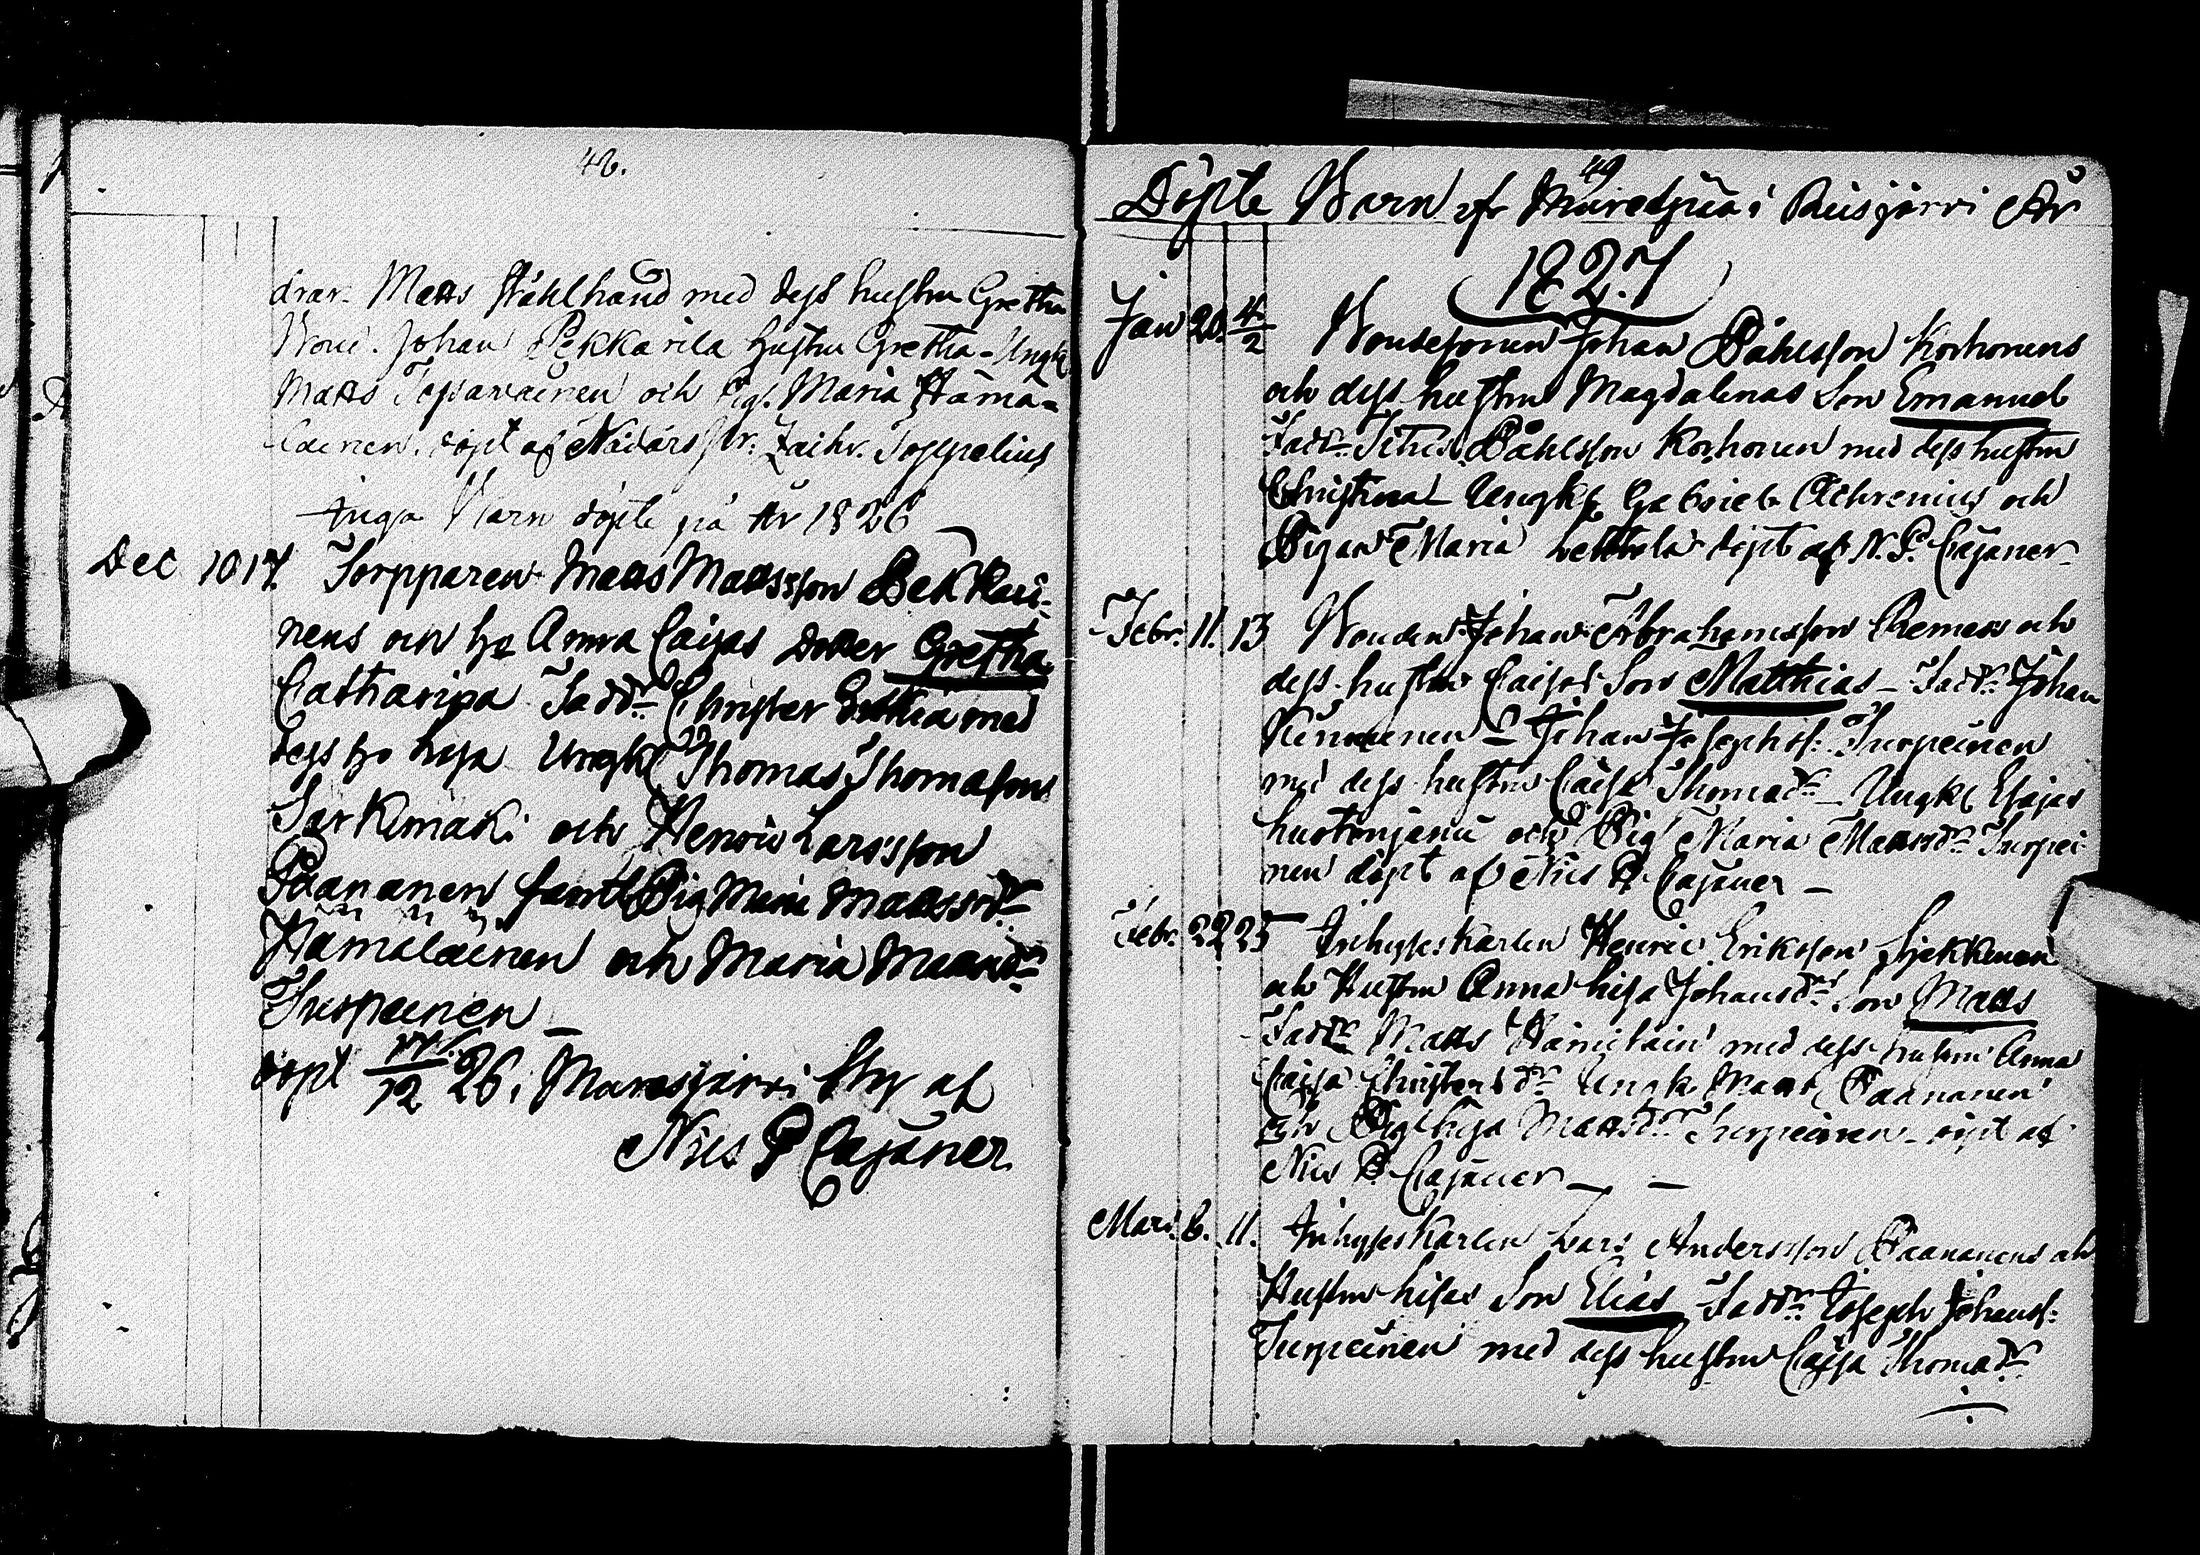 48.
drar. Matts Ståhlhand med dess hustru Gretha
Bond. Johan Pekkarila hustru Gretha - Ungk.
Matts Toparainen och Pig. Maria Häma=
läinen. döpt af Zachr. Toppelius
Inga Barn döpte på År 1826
Dec 10 17. Torpparen Matts Mattsson Bekkari=
nens och ho Anna Caisas dotter Gretha
Catharina Faddr. Christer med
dess ho Lisa Ungk. Thomas Thomasson
Särkimäki och Henric Larsson
Paananen samt Pig. Maria Mattsdr.
Hämäläinen och Maria Mattsdr.
Turpeinen
döpt 17/12 26. af
Nils P Cajaner.
49
Döpte Barn af i Reisjärvi År
1827
Jan 20. 4/2 Bondesonen Johan Påhlsson Korhonens
och dess hustru Magdalenas Son Emanuel
Faddr. Påhlsson Korhonen med dess hustru
Christina Ungk. Gabriel Achrenius och
Pigan Maria döpt af N. P. Cajaner
Febr. 11. 13 Bonden Johan Abrahamsson och
dess hustru Caisas Son Matthias - Faddr. Johan
Kinnunen - Johan Josephs: Turpeinen
med dess hustru Caisa Thomadr. - Ungk. Esajas
Huotonjemi och Pig. Maria Mattsdr. Turpei
nen döpt af Nils P. Cajaner -
Febr. 22 25 Inhyseskarlen Henric Eriksson
och Hustru Anna Lisa Johansdrs Son Matts
Faddr. Matts Hämeläin med dess hustru Anna
Caisa Christersdr. Ungk. Matts Paananen
och Pig. Lisa Mattsdr. Turpeinen - döpt af
Nils P. Cajaner - -
Mars. 6. 11. Inhyseskarlen Lars Andersson Paananens och
Hustru Lisas Son Elias Faddr. Joseph Johans:
Turpeinen med dess hustru Caisa Thomadr.